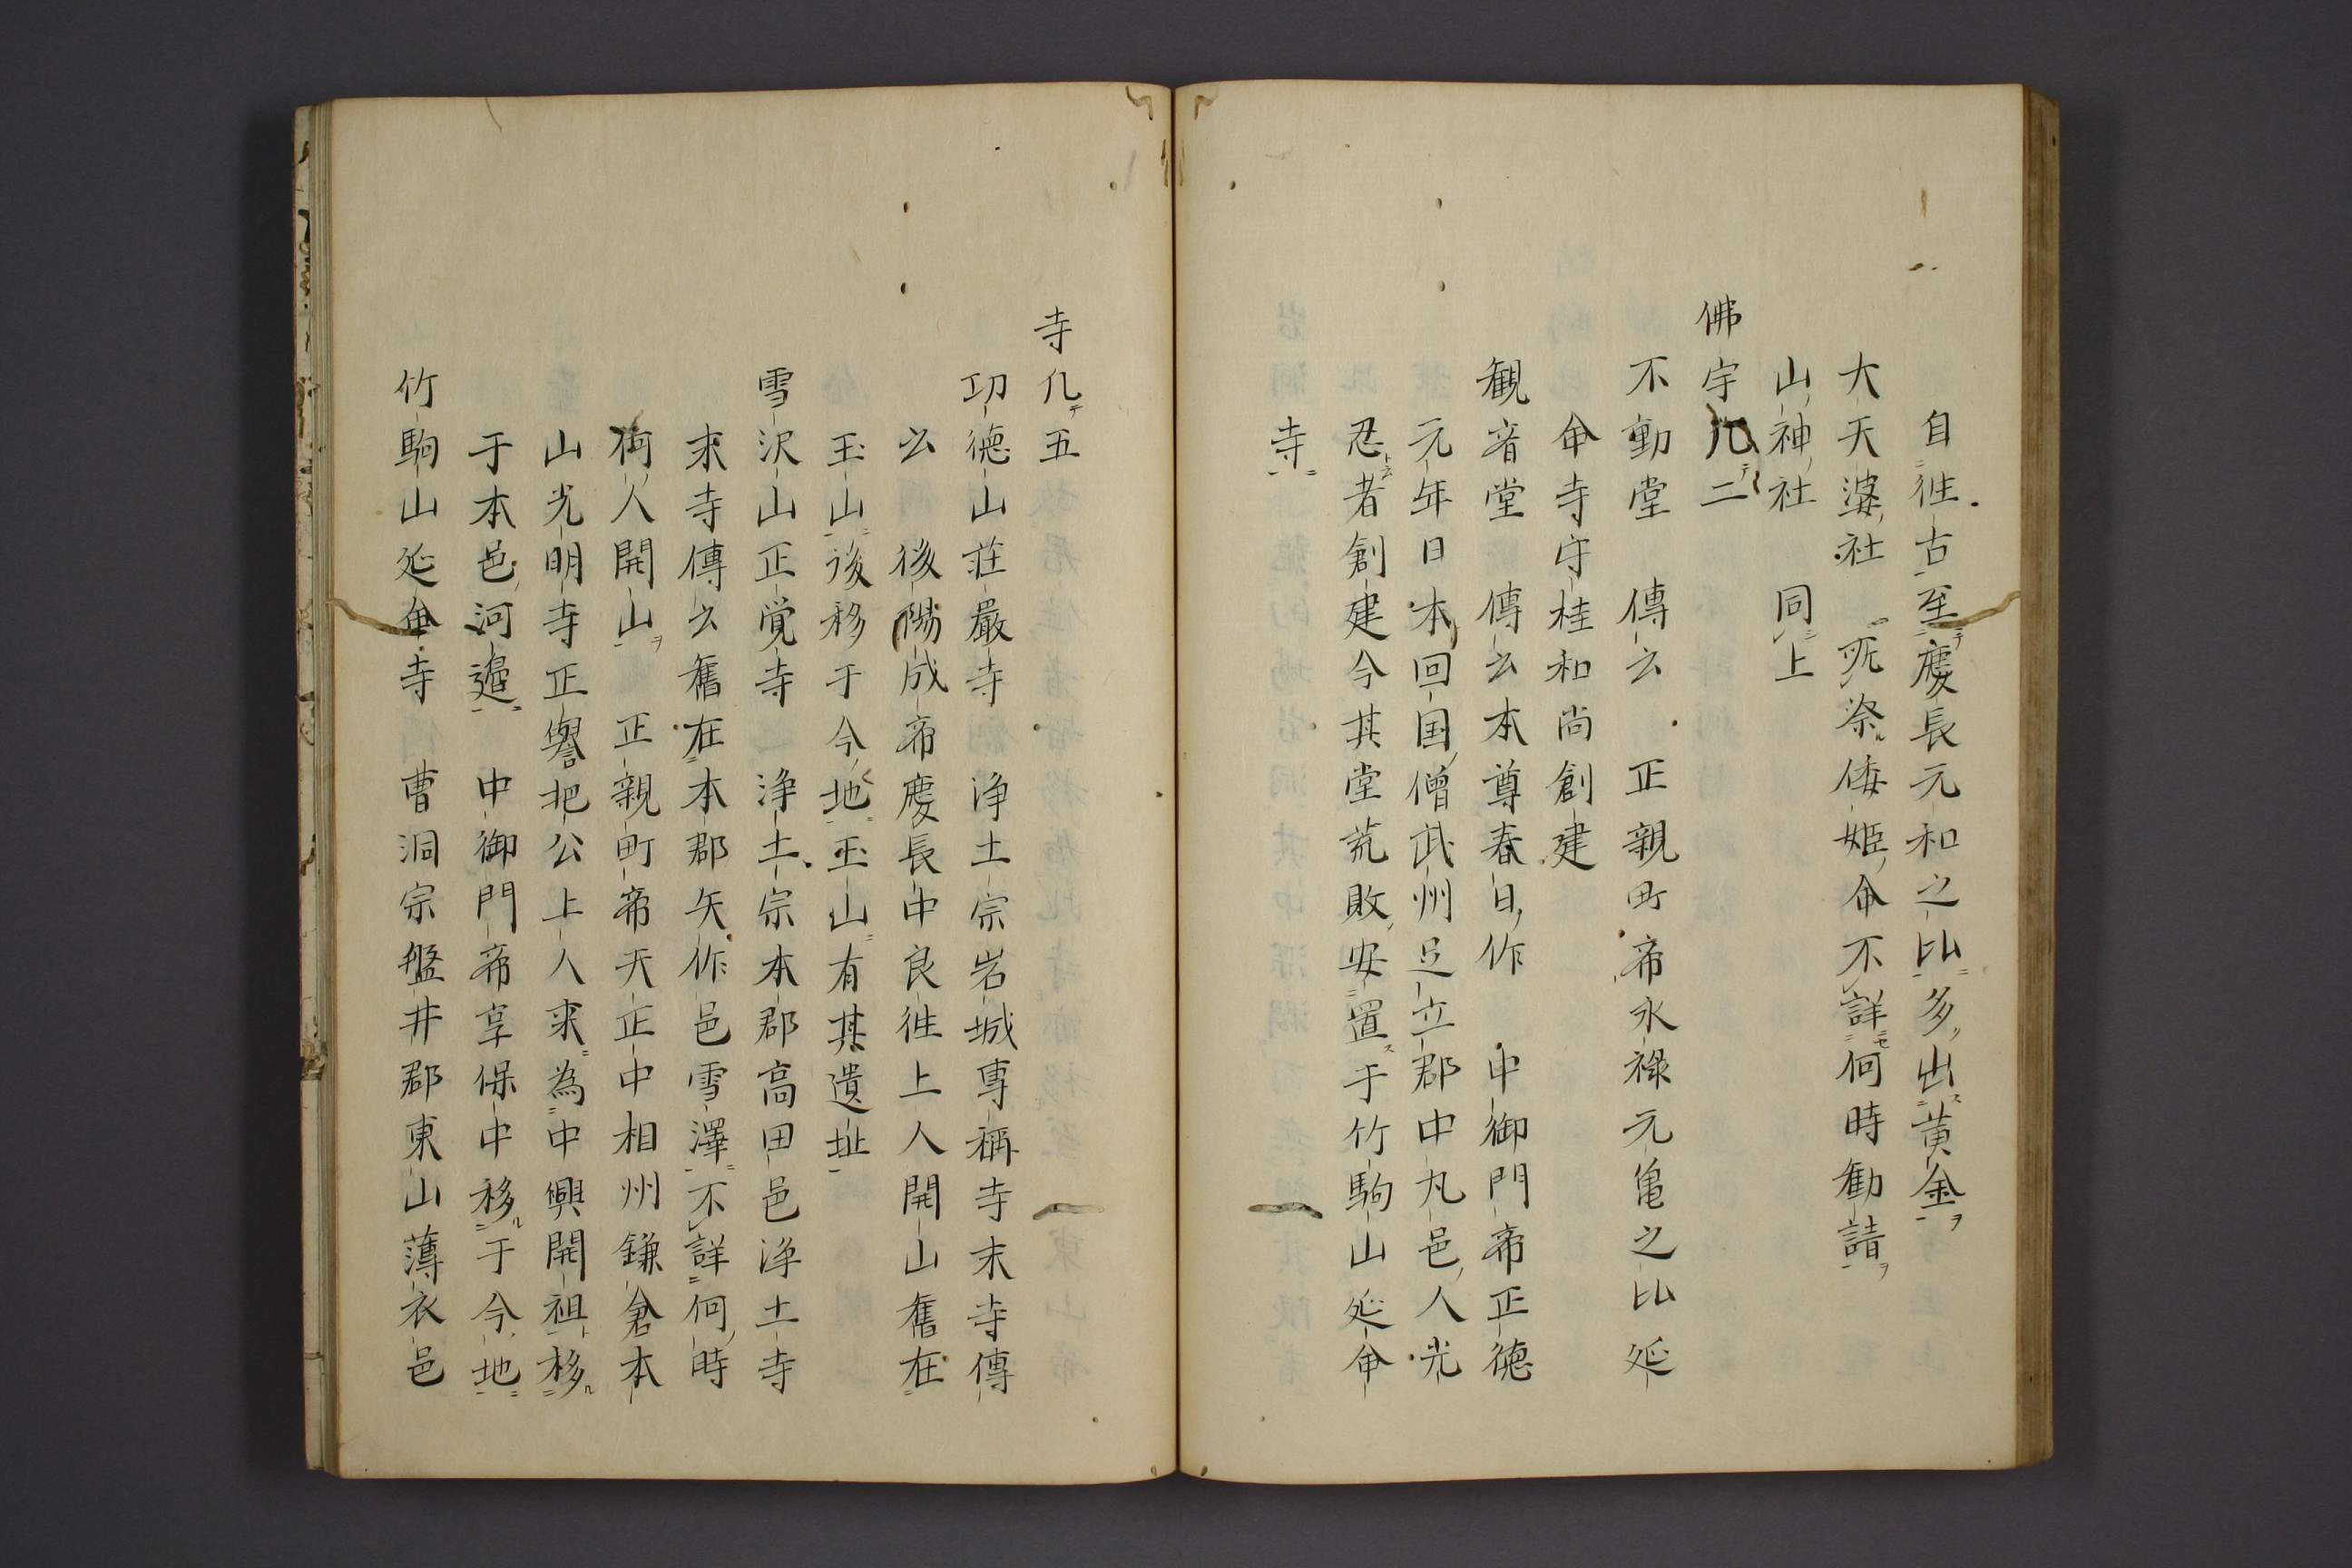 自往古至慶長元和之比多出黄金
大天婆社　所祭倭姫命不詳何時勧請
山神社　同上
佛宇凡二
不動堂　傳云　正親町帝永禄元亀之比延
命寺守桂和尚創建
観音堂　傳云本尊春日作　中御門帝正徳
元年日本回国僧武州足立郡中丸邑人光
忍者創建今其堂荒敗安置于竹駒山延命
寺
寺凡五
功徳山荘嚴寺　浄土宗岩城専稱寺末寺傳
云　後陽成帝慶長中良往上人開山舊在
玉山後移于今地玉山有其遺址
雪沢山正覚寺　浄土宗本郡高田邑浄土寺
末寺傳云舊在本郡矢作邑雪澤不詳何時
何人開山　正親町帝天正中相州鎌倉本
山光明寺正譽把公上人来為中興開祖移
于本邑河邉　中御門帝享保中移于今地
竹駒山延命寺　曹洞宗盤井郡東山薄衣邑